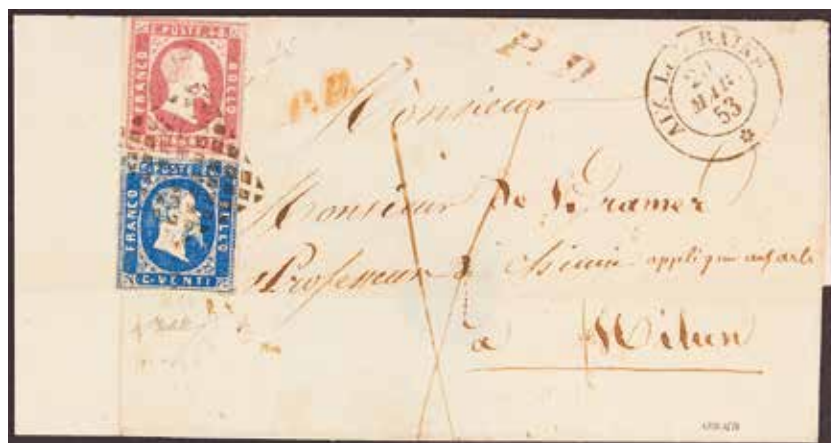 C. POSTE 40
FRANCO
BOLLO
C. POSTE 20
FRANCO
BOLLO
C. VENTI
P.D.
P.D
AIX LES BAINS
MAR
53
Monsieur
Monsieur De Kramer
Professeur chimie appliqué aux arts
à Milan